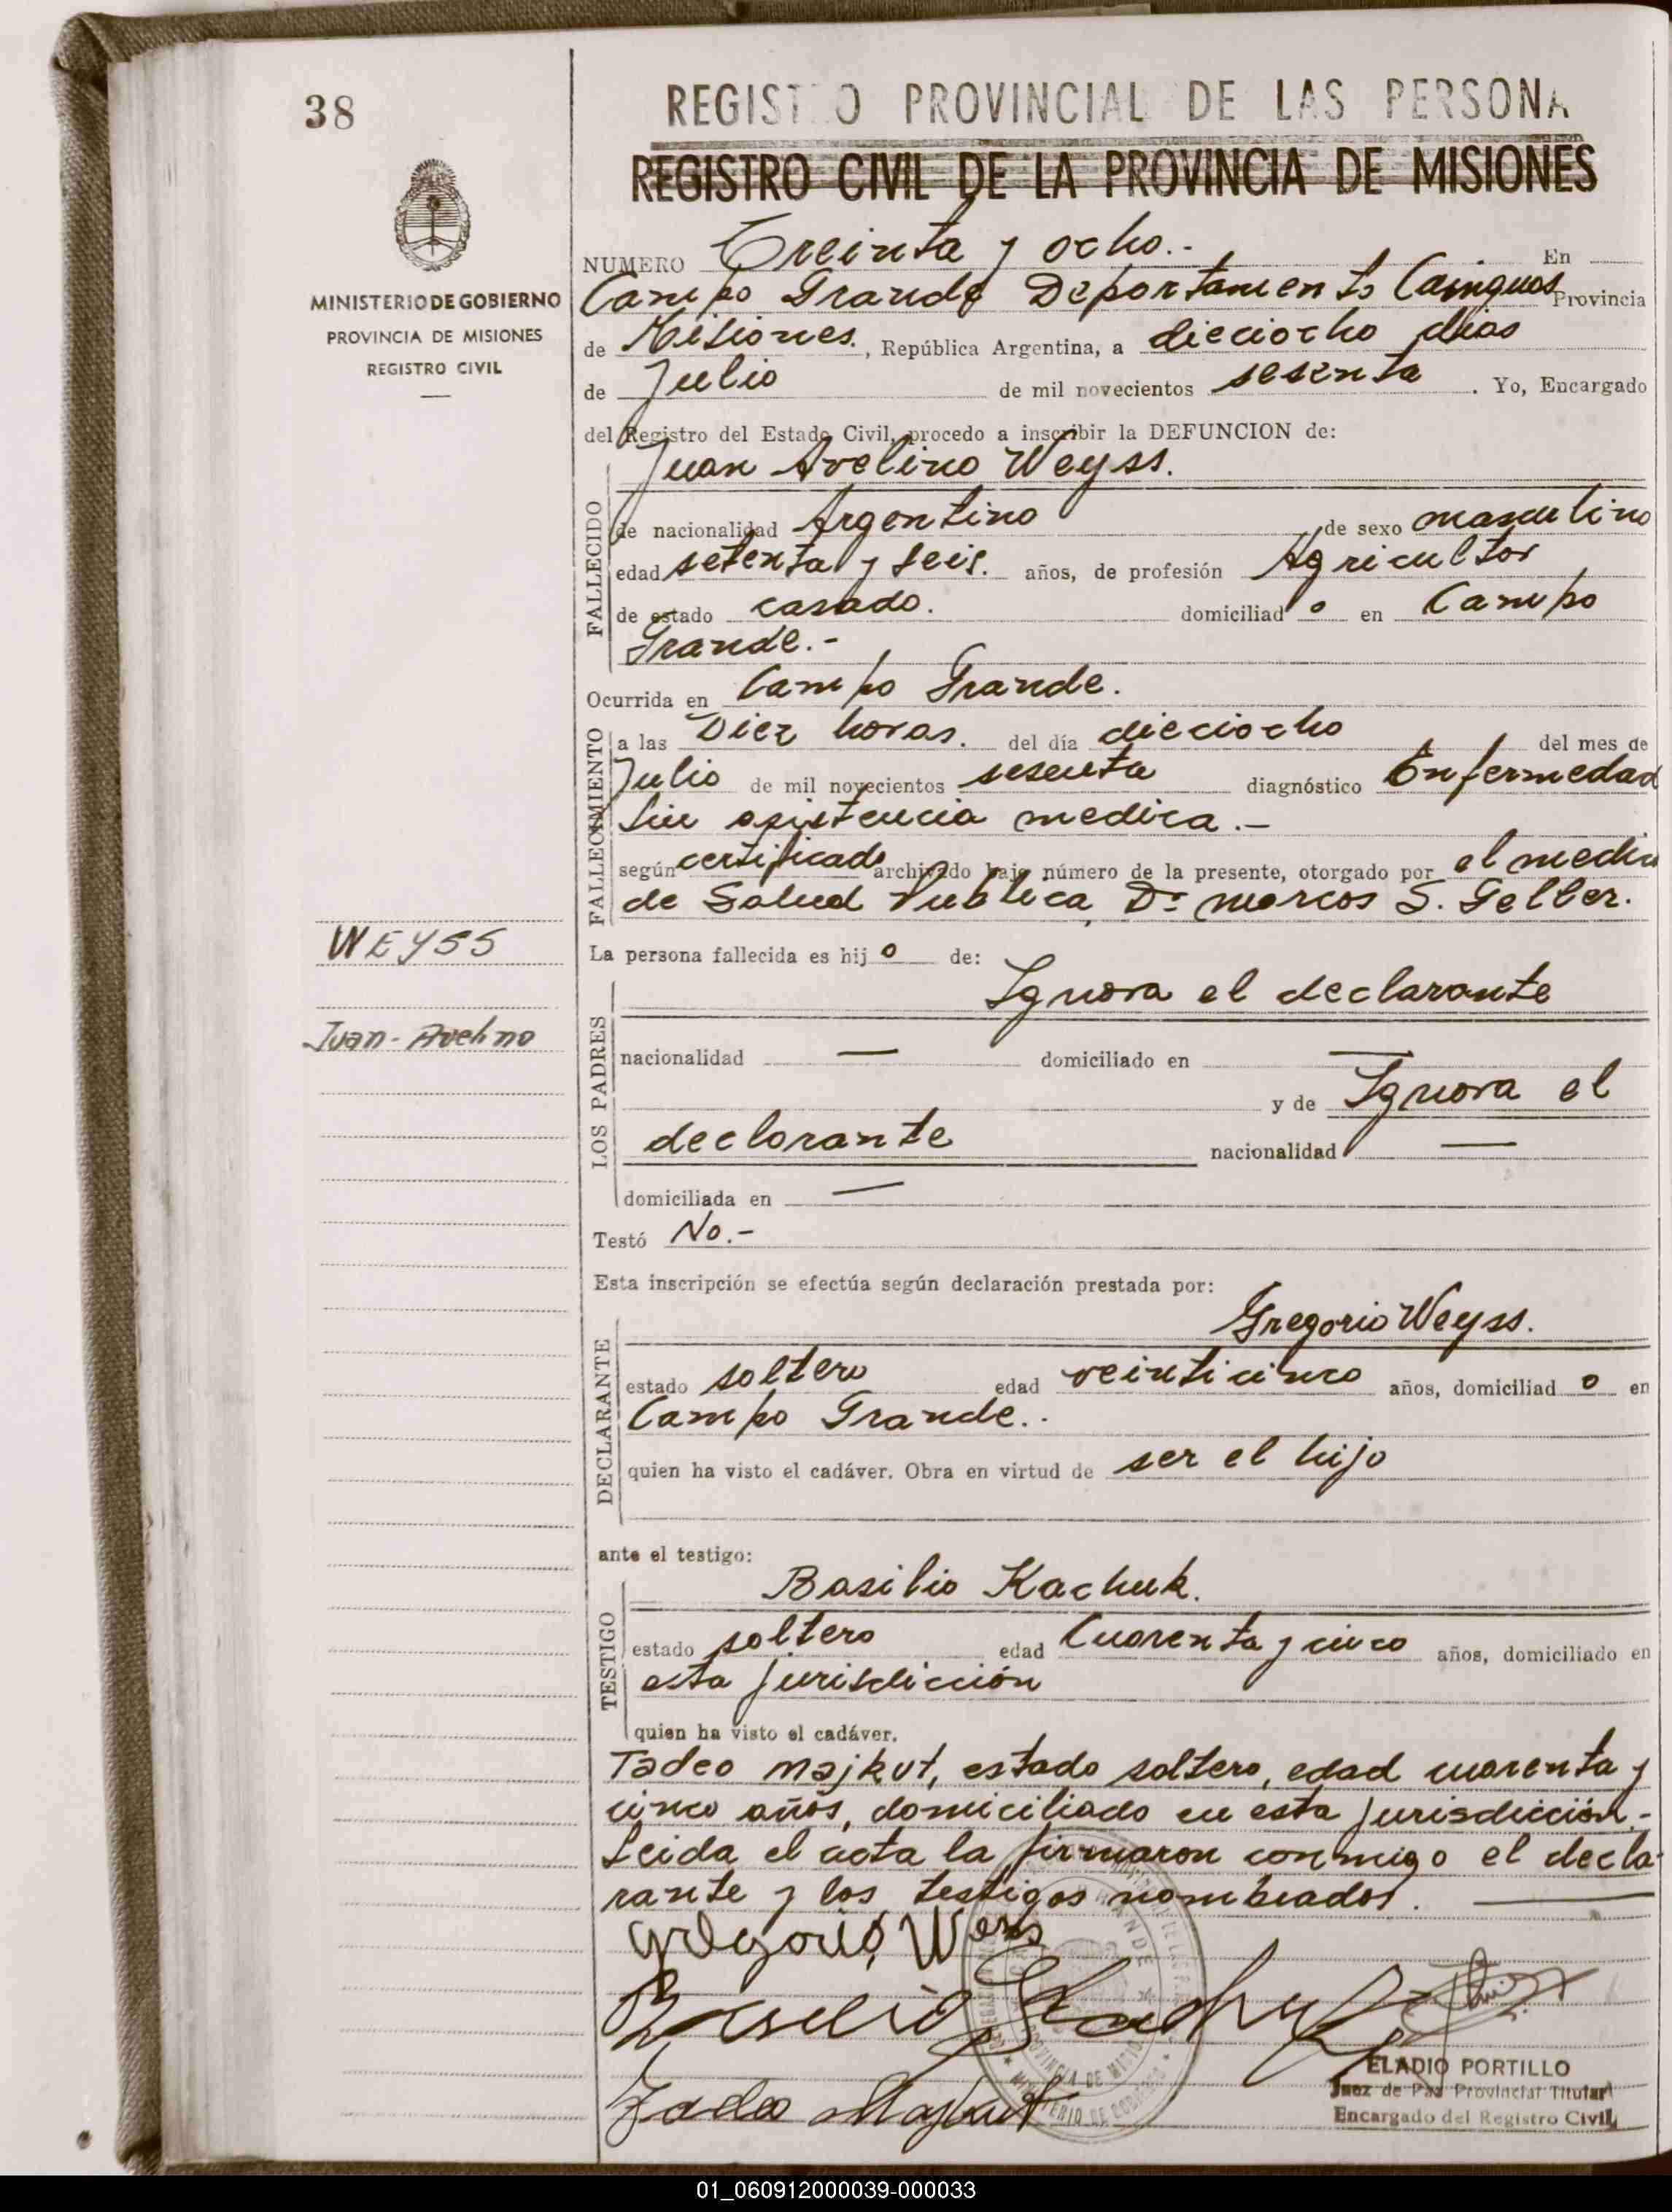 38
REGISTRO PROVINCIAL DE LAS PERSONA
REGISTRO CIVIL DE LA PROVINCIA DE MISIONES
MINISTERIO DE GOBIERNO
PROVINCIA DE MISIONES
REGISTRO CIVIL
NUMERO Treinta y ocho.- En
Campo Grande Departamento Cainguas Provincia
de Misiones. , República Argentina, a dieciocho dias
de Julio de mil novecientos sesenta . Yo, Encargado
del Registro del Estado Civil, procedo a inscribir la DEFUNCION de:
Juan Avelino Weyss.
FALLECIDO
de nacionalidad Argentino de sexo masculino
edad setenta y seis. años, de profesión Agricultor
de estado casado. domiciliad o en Campo
Grande.-
Ocurrida en Campo Grande.
FALLECIMIENTO
a las Diez horas. del día dieciocho del mes de
Julio de mil novecientos sesenta diagnóstico Enfermedad
sin asistencia medica.-
según certificado archivado bajo número de la presente, otorgado por el medico
de Salud Publica, Dr marcos S. Gelber.
WEYSS
Juan-Avelino
La persona fallecida es hij o de:
LOS PADRES
Ignora el declarante
nacionalidad — domiciliado en —
y de Ignora el
declarante nacionalidad —
domiciliada en —
Testó No.-
Esta inscripción se efectúa según declaración prestada por:
DECLARANTE
Gregorio Weyss.
estado soltero edad veinticinco años, domiciliad o en
Campo Grande..
quien ha visto el cadáver. Obra en virtud de ser el hijo
ante el testigo:
TESTIGO
Basilio Kachuk.
estado soltero edad Cuarenta y cinco años, domiciliado en
esta jurisdicción
quien ha visto el cadáver.
Tadeo majkut, estado soltero, edad cuarenta y
cinco años, domiciliado en esta jurisdicción.-
Leida el acta la firmaron conmigo el decla-
rante y los testigos nombrados. —
Gregorio Weys
Basilio Kachuk
Tadeo Majkut
PROVINCIA DE MISIONES
MINISTERIO DE GOBIERNO
ELADIO PORTILLO
Juez de Paz Provincial Titular
Encargado del Registro Civil
01_060912000039-000033